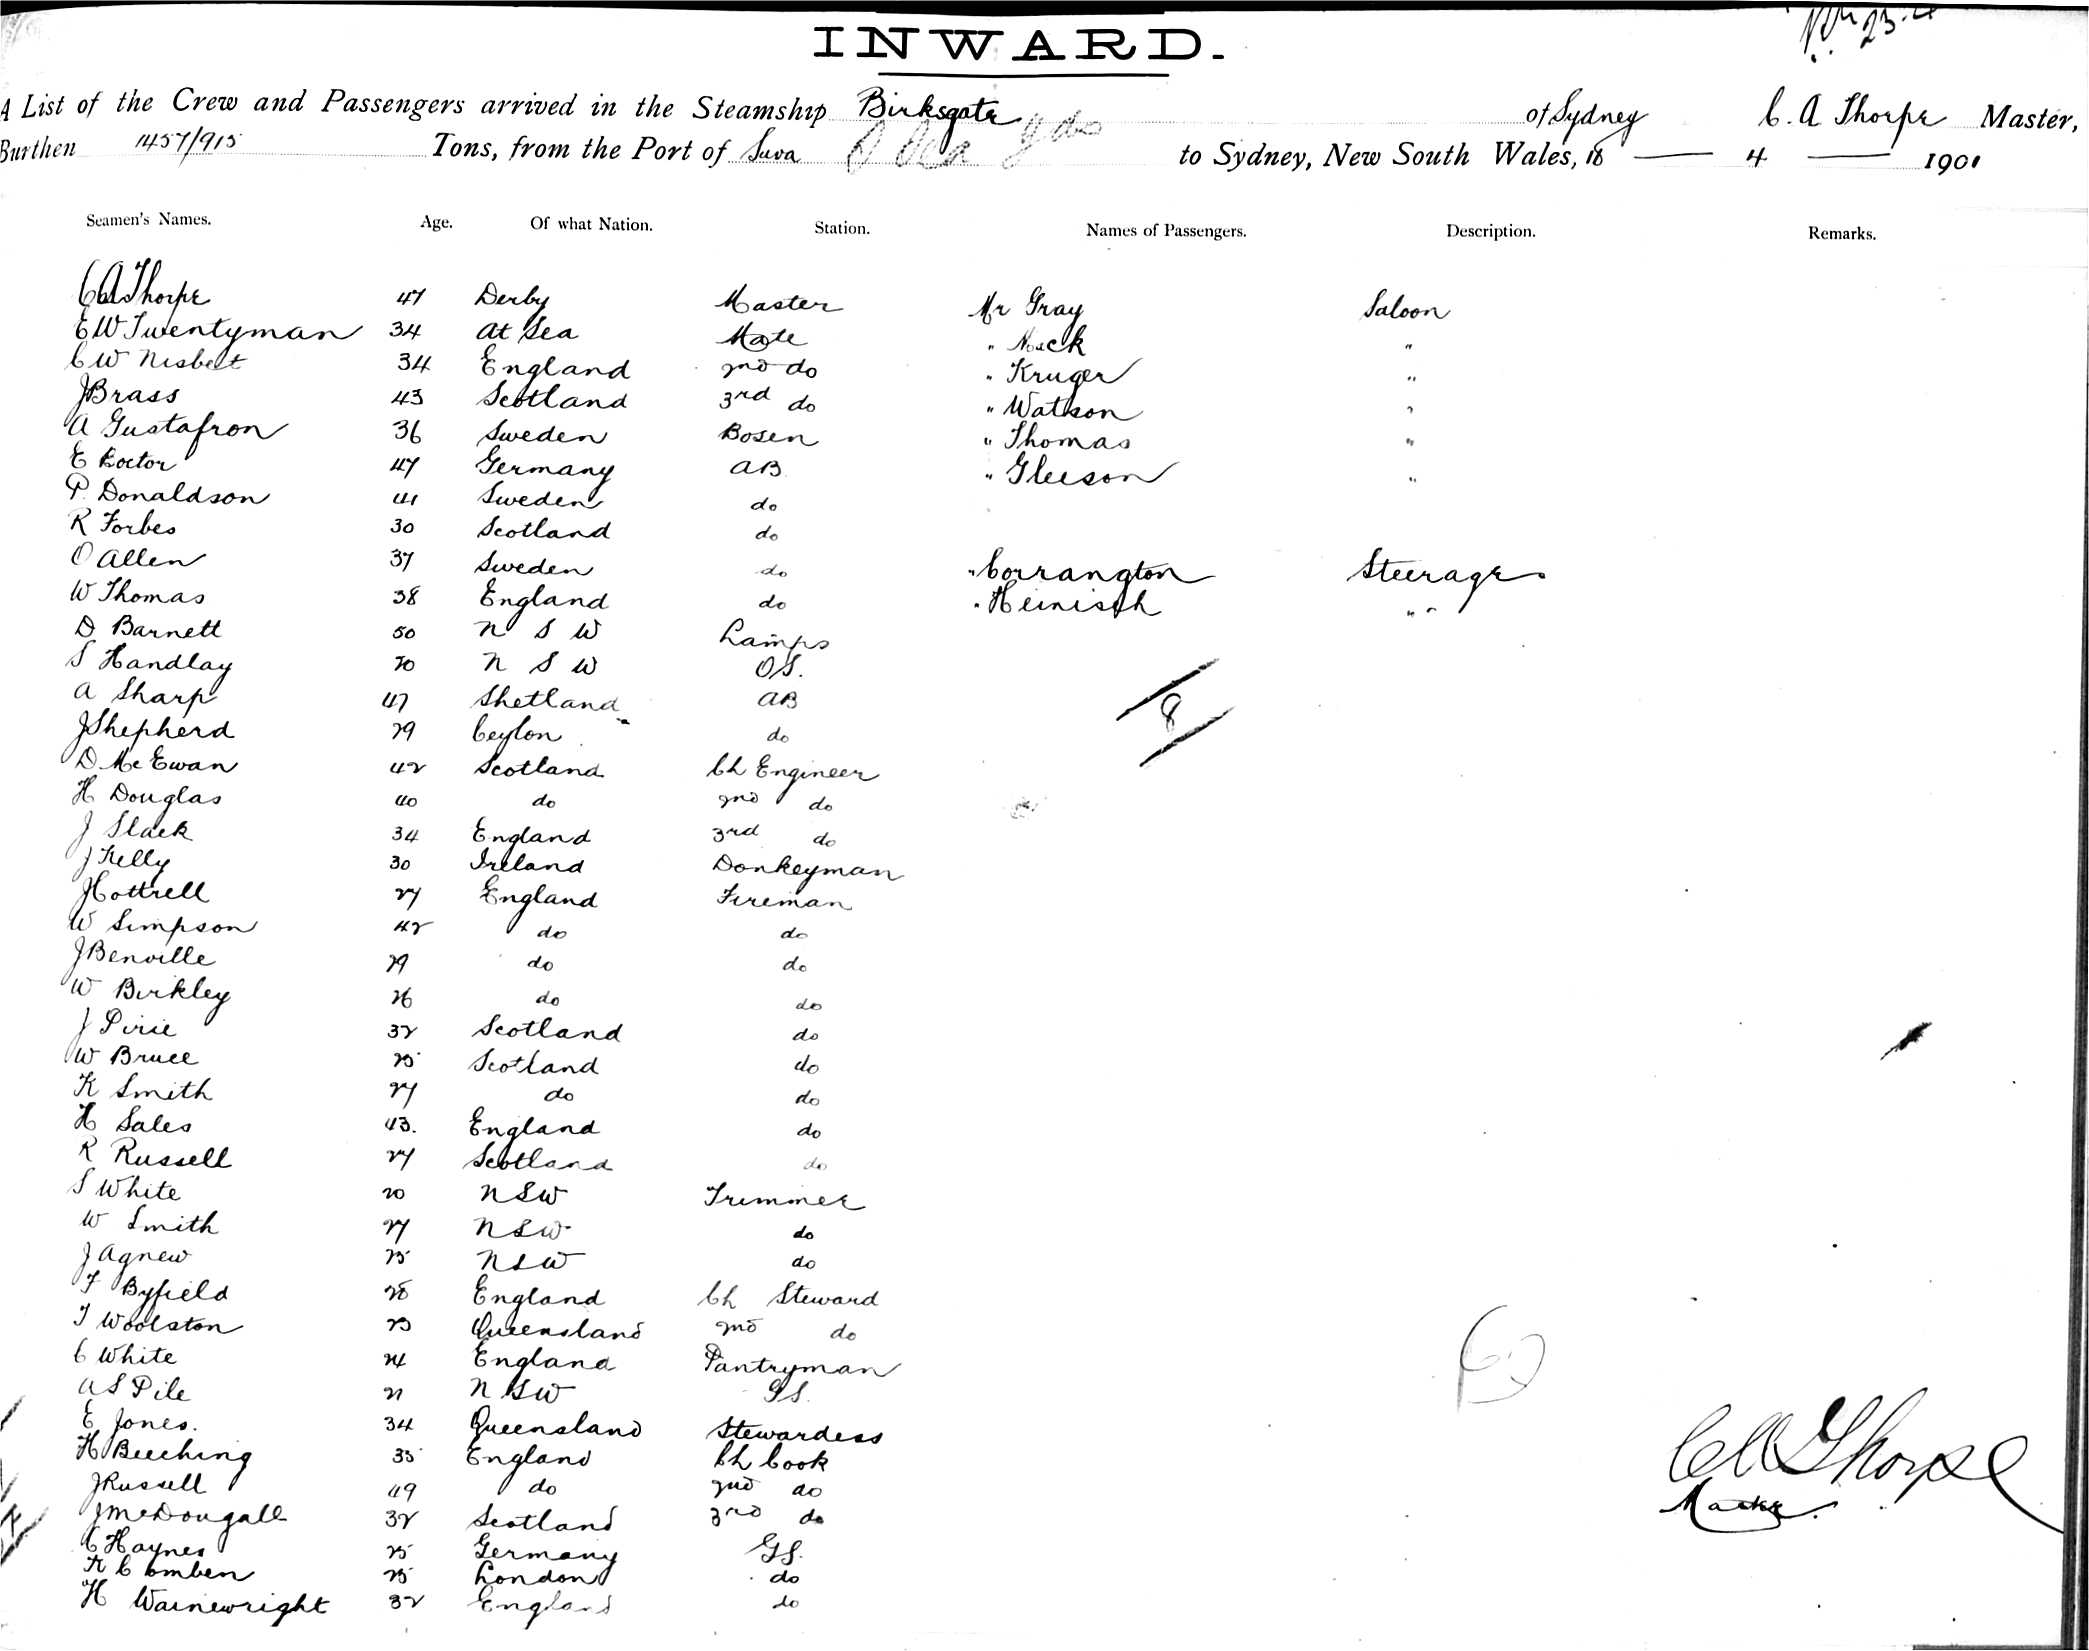 INWARD.
A List of the Crew and Passengers arrived in the Steamship Birksgate of Sydney C. A Thorpe Master,
Burthen 1457/915 Tons, from the Port of Suva to Sydney, New South Wales, 18 — 4 — 1901
Seamen's Names. Age. Of what Nation. Station. Names of Passengers. Description. Remarks.
C A Thorpe 47 Derby Master Mr Gray Saloon
E W Twentyman 34 at Sea Mate " Mack "
C W Nisbett 34 England 2nd do " Kruger "
J Brass 43 Scotland 3rd do " Watson "
A Gustafson 36 Sweden Bosen " Thomas "
E Boctor 47 Germany AB " Gleeson "
P. Donaldson 41 Sweden do
R Forbes 30 Scotland do
O Allen 37 Sweden do " Corrangton Steerage
W Thomas 38 England do " Heinisch " "
D Barnett 50 N S W Lamps
S Handlay 20 N S W OS.
A Sharp 47 Shetland AB
8
J Shepherd 29 Ceylon do
D McEwan 42 Scotland Ch Engineer
H Douglas 40 do 2nd do
J Slack 34 England 3rd do
J Kelly 30 Ireland Donkeyman
J Cottrell 27 England Fireman
W Simpson 42 do do
J Benville 29 do do
W Birkley 26 do do
J Pirie 32 Scotland do
W Bruce 25 Scotland do
K Smith 27 do do
H Sales 43. England do
R Russell 27 Scotland do
S White 20 NSW Trimmer
W Smith 27 NSW do
J Agnew 25 NSW do
F Byfield 28 England Ch Steward
T Woolston 23 Queensland 2nd do
C White 24 England Pantryman
A S Pile 21 N SW GS.
E Jones. 34 Queensland Stewardess
H Beeching 35 England Ch Cook
J Russell 49 do 2nd do
J McDougall 32 Scotland 3rd do
C Haynes 25 Germany GS.
A Comben 25 London do
H Wainewright 32 England do
C A Thorpe
Master.